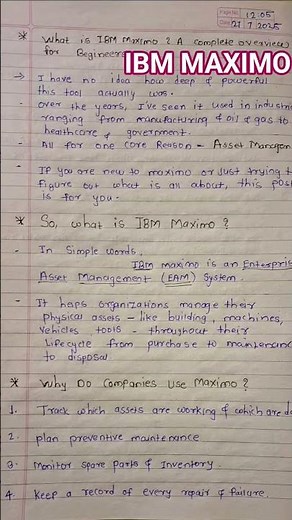 Page No. 12.05
Date 27 7 2025
* What is IBM Maximo? A complete overview
for Begineers
IBM MAXIMO
→ I have no idea how deep & powerful
this tool actually was.
- Over the years, I've seen it used in industri
ranging from manufacturing & oil & gas to
healthcare & government.
- All for one core Reason - Asset Managem
- If you are new to maximo or just trying t
figure out what is all about, this pos
is for you -
* So, what is IBM Maximo?
- In Simple words,
IBM maximo is an Enterpris
Asset Management (EAM) System.
- It heps organizations manage their
physical assets - like building, machines,
vehicles tools - throughout their
lifecycle from purchase to maintenanc
to disposal
* Why Do Companies Use Maximo?
1. Track which assets are working & which are do
2. plan preventive maintenance
3. Monitor spare parts & Inventory.
4. Keep a record of every repair & failure.